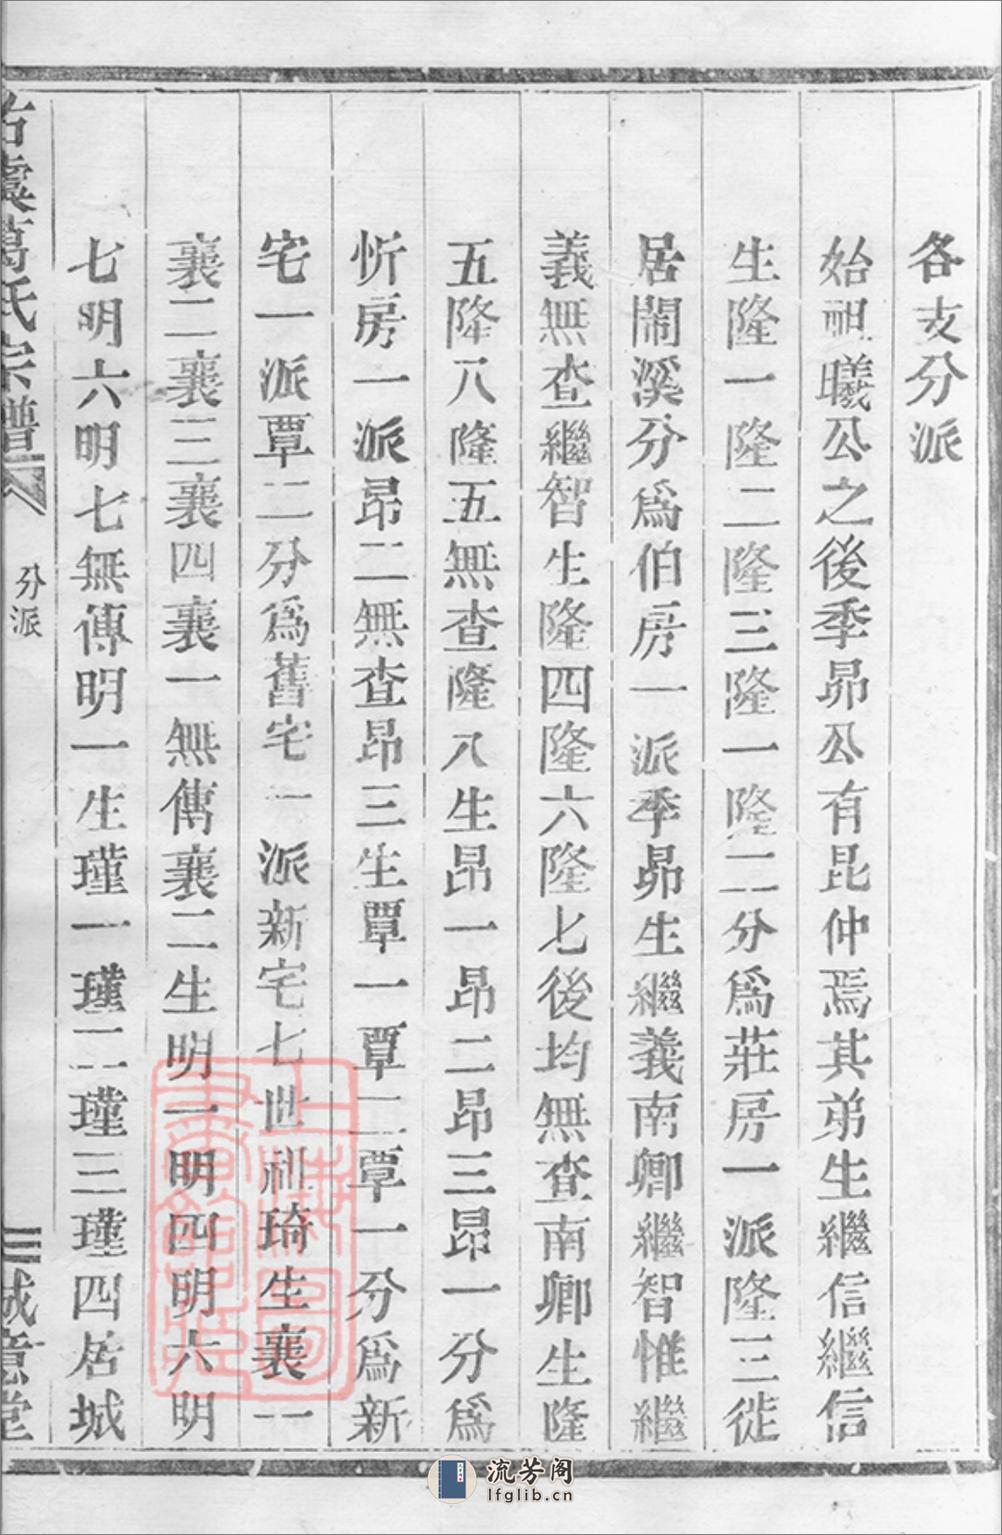 各支分派
始祖曦公之後季昴公有昆仲焉其弟生繼信繼信
生隆一隆二隆三隆一隆二分爲莊房一派隆三徙
居閙溪分爲伯房一派季昴生繼義南卿繼智惟繼
義無查繼智生隆四隆六隆七後均無查南卿生隆
五隆八隆五無查隆八生昂一昂二昂三昂一分爲
忻房一派昂二無查昂三生覃一覃二覃一分爲新
宅一派覃二分爲舊宅一派新宅七世祖琦生襄一
襄二襄三襄四襄一無傳襄二生明一明四明六明
七明六明七無傳明一生瑾一瑾二瑾三瑾四居城
古虞葛氏宗譜
分派
三
誠意堂
上海圖書館藏
流芳阁
lfglib.cn